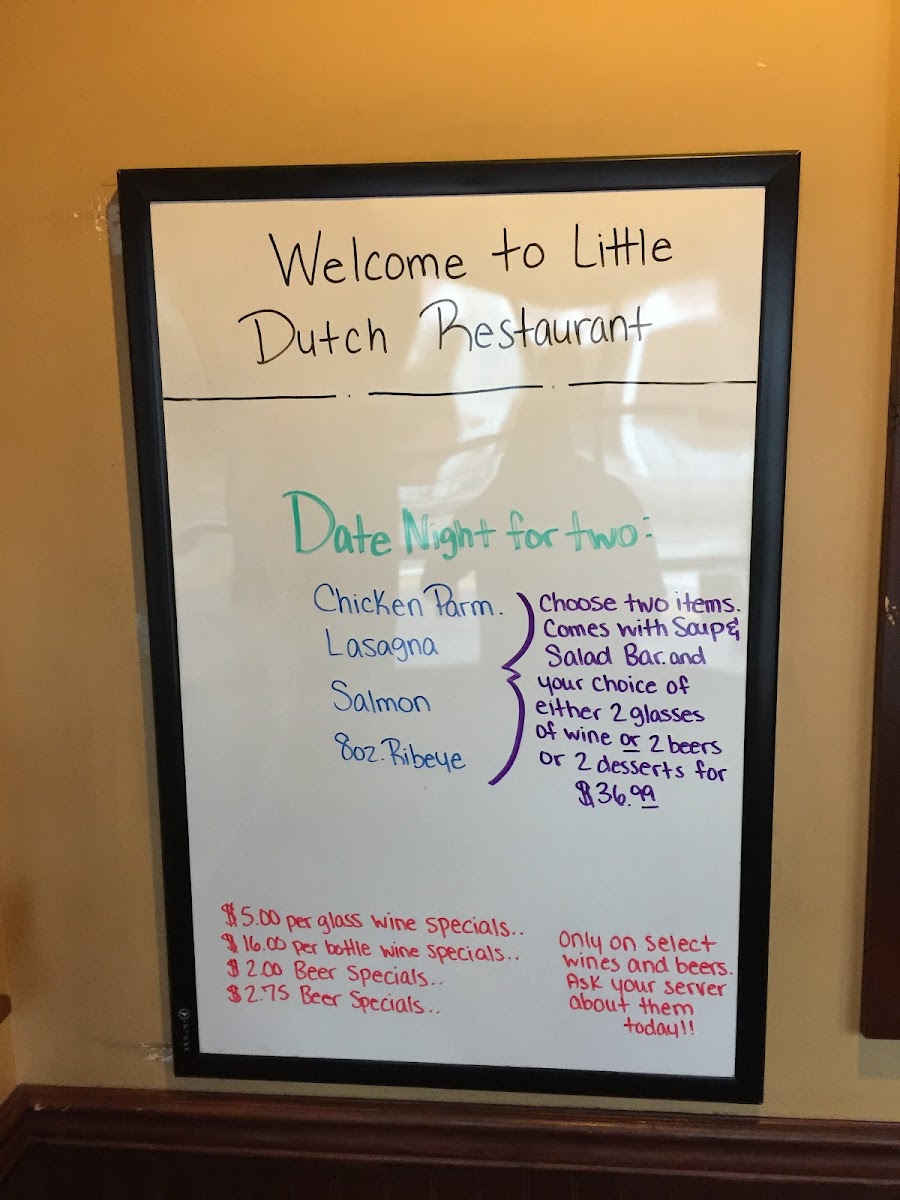 Welcome to Little
Dutch Restaurant
Date Night for two:
Chicken Parm.
Lasagna
Salmon
8oz. Ribeye
Choose two items.
Comes with Soup &
Salad Bar. and
your choice of
either 2 glasses
of wine or 2 beers
or 2 desserts for
$36.99
$5.00 per glass wine specials..
$16.00 per bottle wine specials..
$2.00 Beer Specials..
$2.75 Beer Specials..
Only on select
wines and beers.
Ask your server
about them
today!!